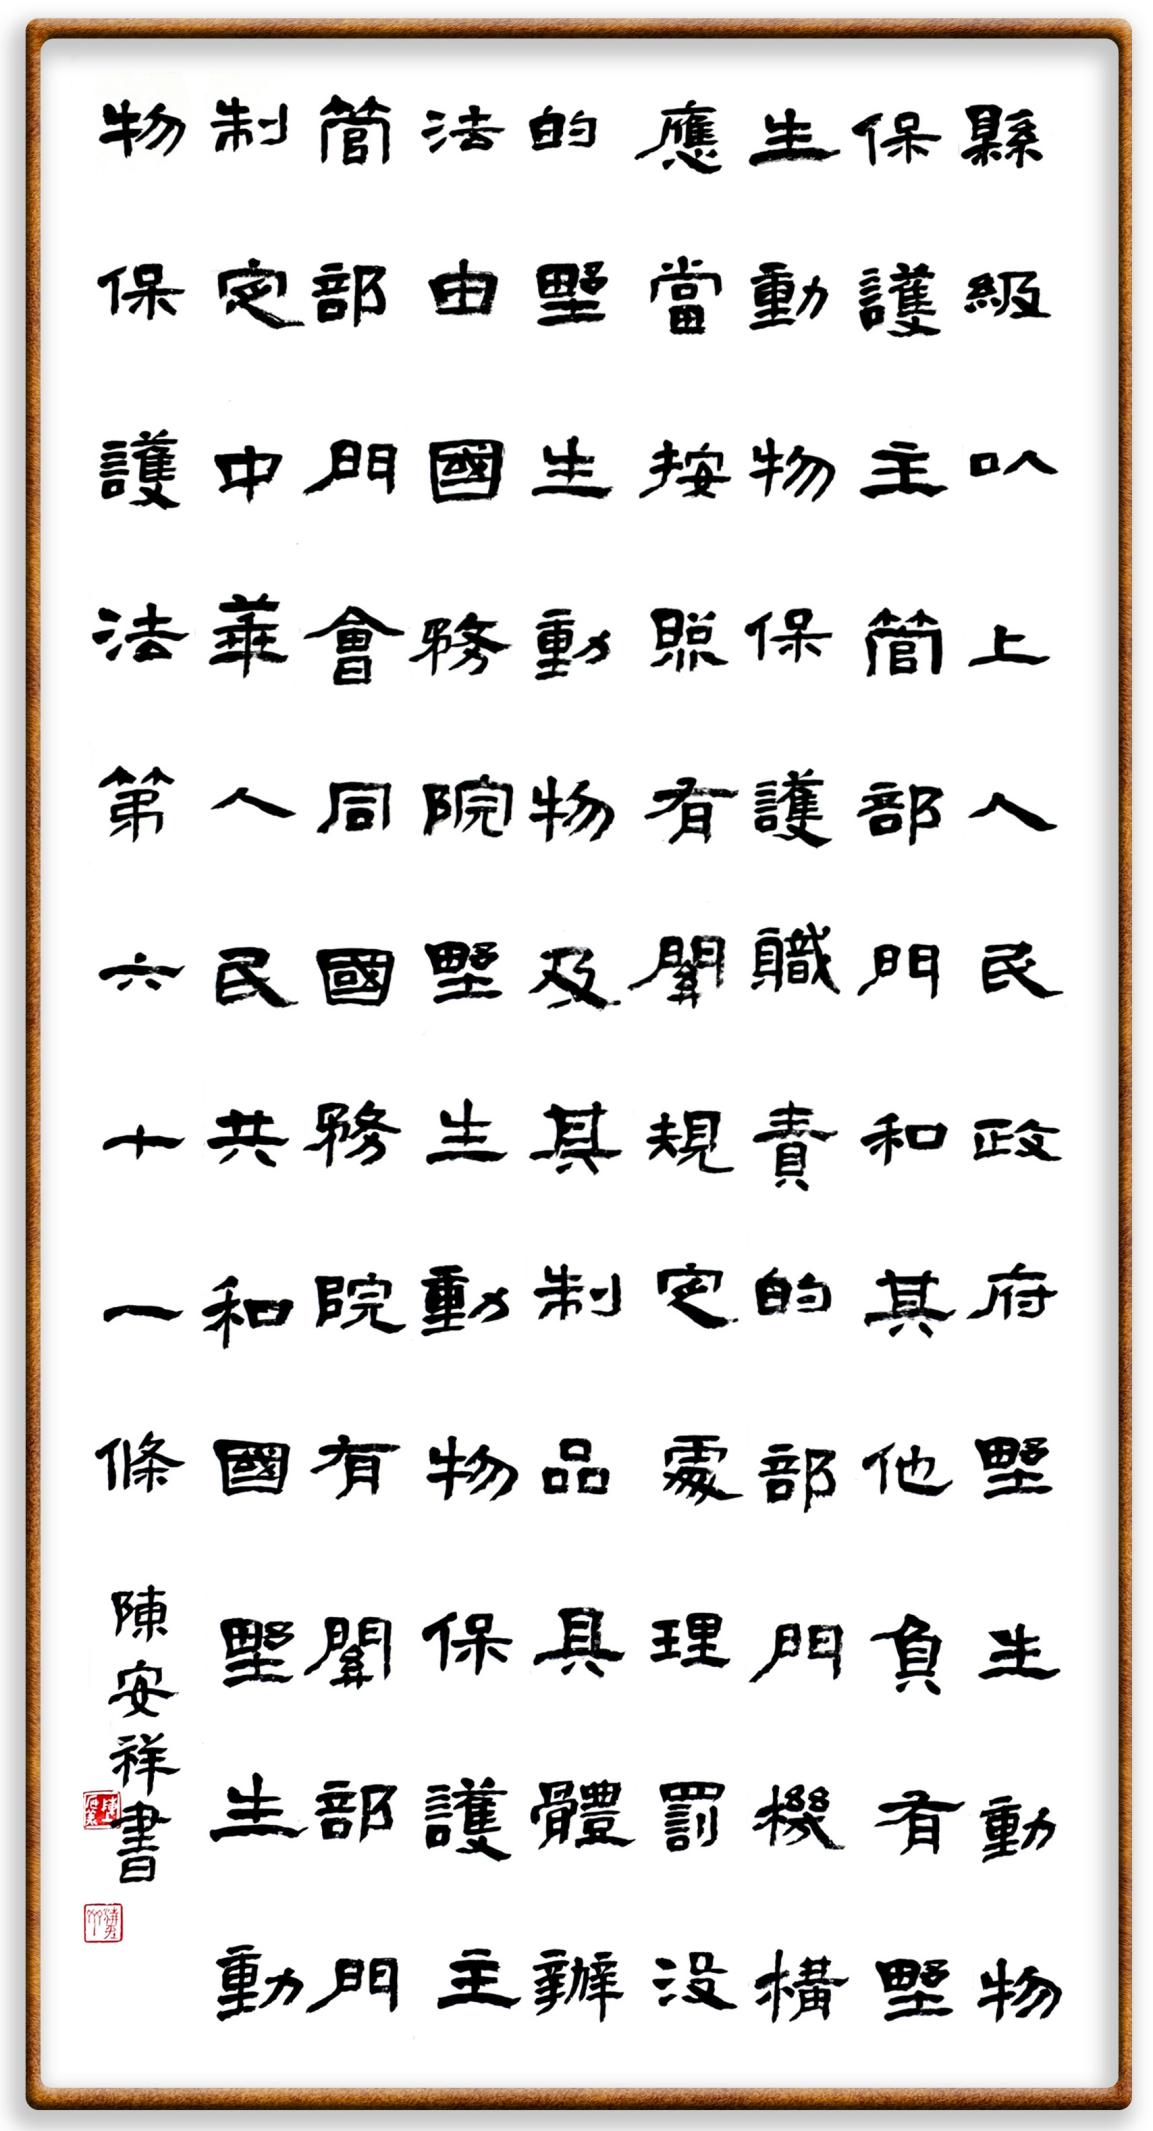 縣級以上人民政府野生動物
保護主管部門和其他負有野
生動物保護職責的部門機構
應當按照有關規定處理罰没
的野生動物及其制品具體辦
法由國務院野生動物保護主
管部門會同國務院有關部門
制定中華人民共和國野生動
物保護法第六十一條
陳安祥書